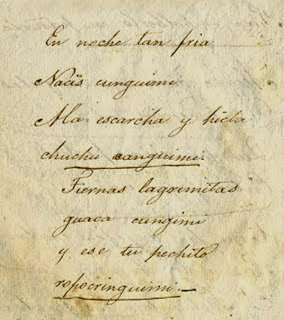 En noche tan fria
Nacïs cunguimi
A la escarcha y hiela
chuchu canguimi.
Fiernas lagremitas
guaca cungimi
y ese tu pechito
ropocringuimi.—